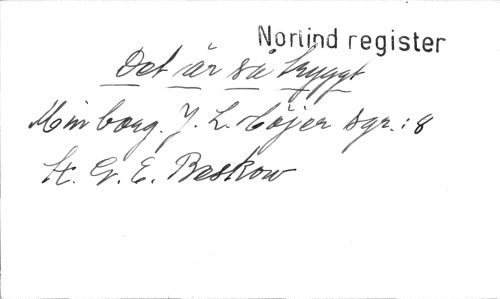 Norlind register
Det är så tryggt
Min borg. J. L. Höjer sgr.: 8
St. G. E. Beskow